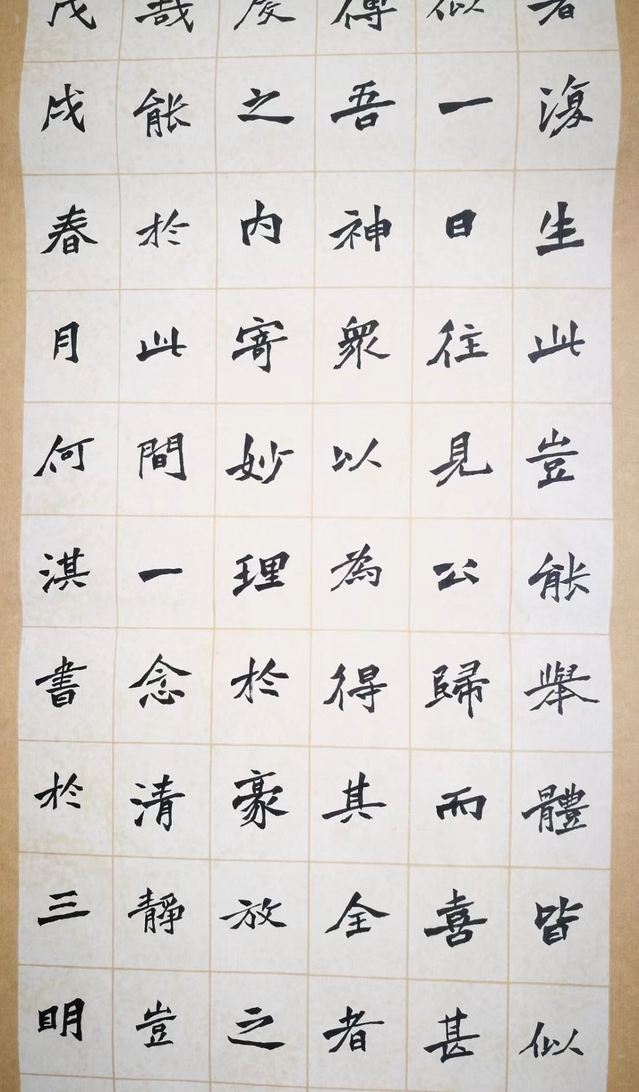 者復生此豈能舉體皆似
似一日往見公歸而喜甚
傳吾神衆以為得其全者
度之内寄妙理於豪放之
哉能於此間一念清靜豈
戊戌春月何淇書於三明